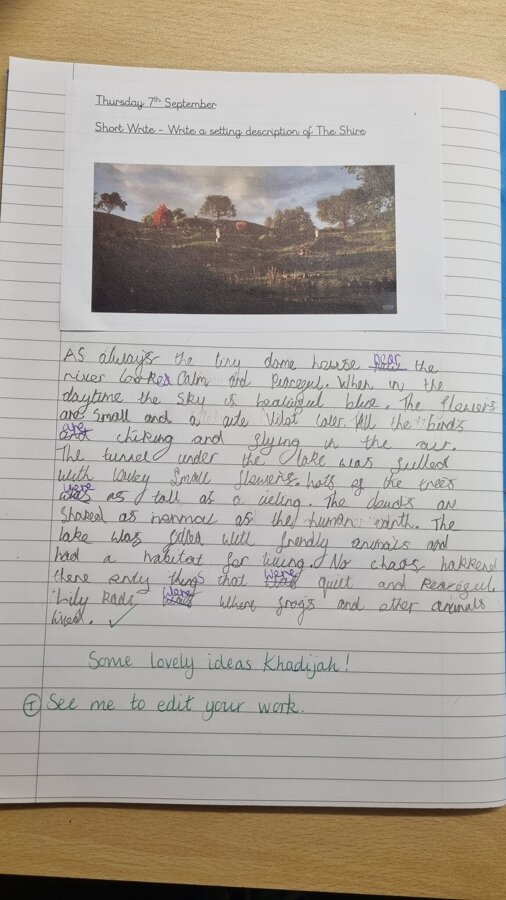 Thursday 7th September
Short Write - Write a setting description of The Shire
As always the tiny dome house near the
river looked Calm and Peacegul. When in the
daytime the sky is beatigul blue. The flowers
are small and a cute Vilot coler. All the birds
are chiring and glying in the air.
The tunnel under the lake was gulled
with small glowers. Lots of the trees
were as tall as a cieling. The clouds are
Shaped as normal as the human earth. The
lake was gilled with frendly animals and
had a habitat for living. No chaos happend
there only things that were quiet and Peacegul.
Lily Pads were where frogs and other animals
lived. ✓
Some lovely ideas Khadijah!
T See me to edit your work.